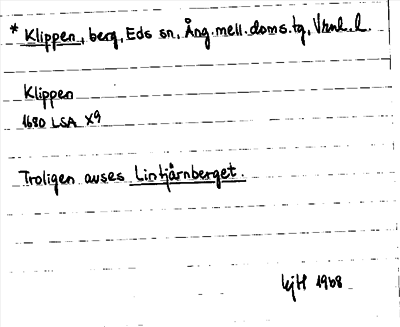 * Klippen, berg, Eds sn, Ång. mell. doms. tg, Vrml. l.
Klippen
1680 LSA X9
Troligen avses Lintjärnberget.
KjH 1968